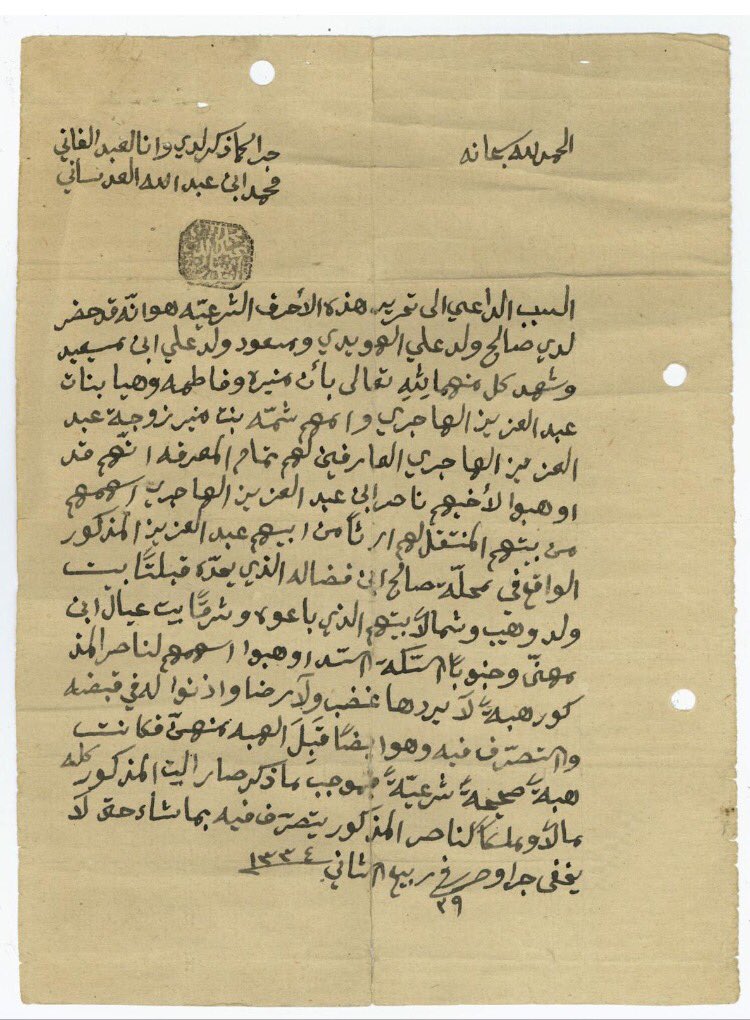 الحمد لله سبحانه
جرا كما ذكر لدي وانا العبد الفاني
محمد ابن عبد الله العدساني
السبب الداعي الى تحرير هذه الأحرف الشرعيّه هو انّه قد حضر
لدي صالح ولد علي الهويدي ومسعود ولد علي ابن مسيعيد
وشهد كل منهما لله تعالى بأن منيره وفاطمه وهيا بنات
عبد العزيز الهاجري وامهم شمّه بنت منير زوجة عبد
العزيز الهاجري العارفين لهم تمام المعرفه انّهم قد
اوهبوا لأخيهم ناصر ابن عبد العزيز الهاجري اسهمهم
من بيتهم المنتقل لهم ارثاً من ابيهم عبد العزيز المذكور
الواقع في محلّة صالح ابن فضاله الذي يحدّه قبلتاً بيت
ولد وهيب وشمالاً بيتهم الذي باعوه وشرقاً بيت عيال ابن
مهنّى وجنوباً السكة السد اوهبوا اسهمهم لناصر المذ
كور هبةً لا يردها غضب ولا رضا واذنوا له في قبضه
والتصرّف فيه وهو ايضاً قَبِلَ الهبه منهنّ فكانت
هبةً صحيحةً شرعيّةً فبموجب ما ذكر صار البيت المذكور كله
مالاً وملكاً لناصر المذكور يتصرّف فيه بما شاء حتى لا
يخفى جرا وحرر في ٢٩ ربيع الثاني ١٣٣٤